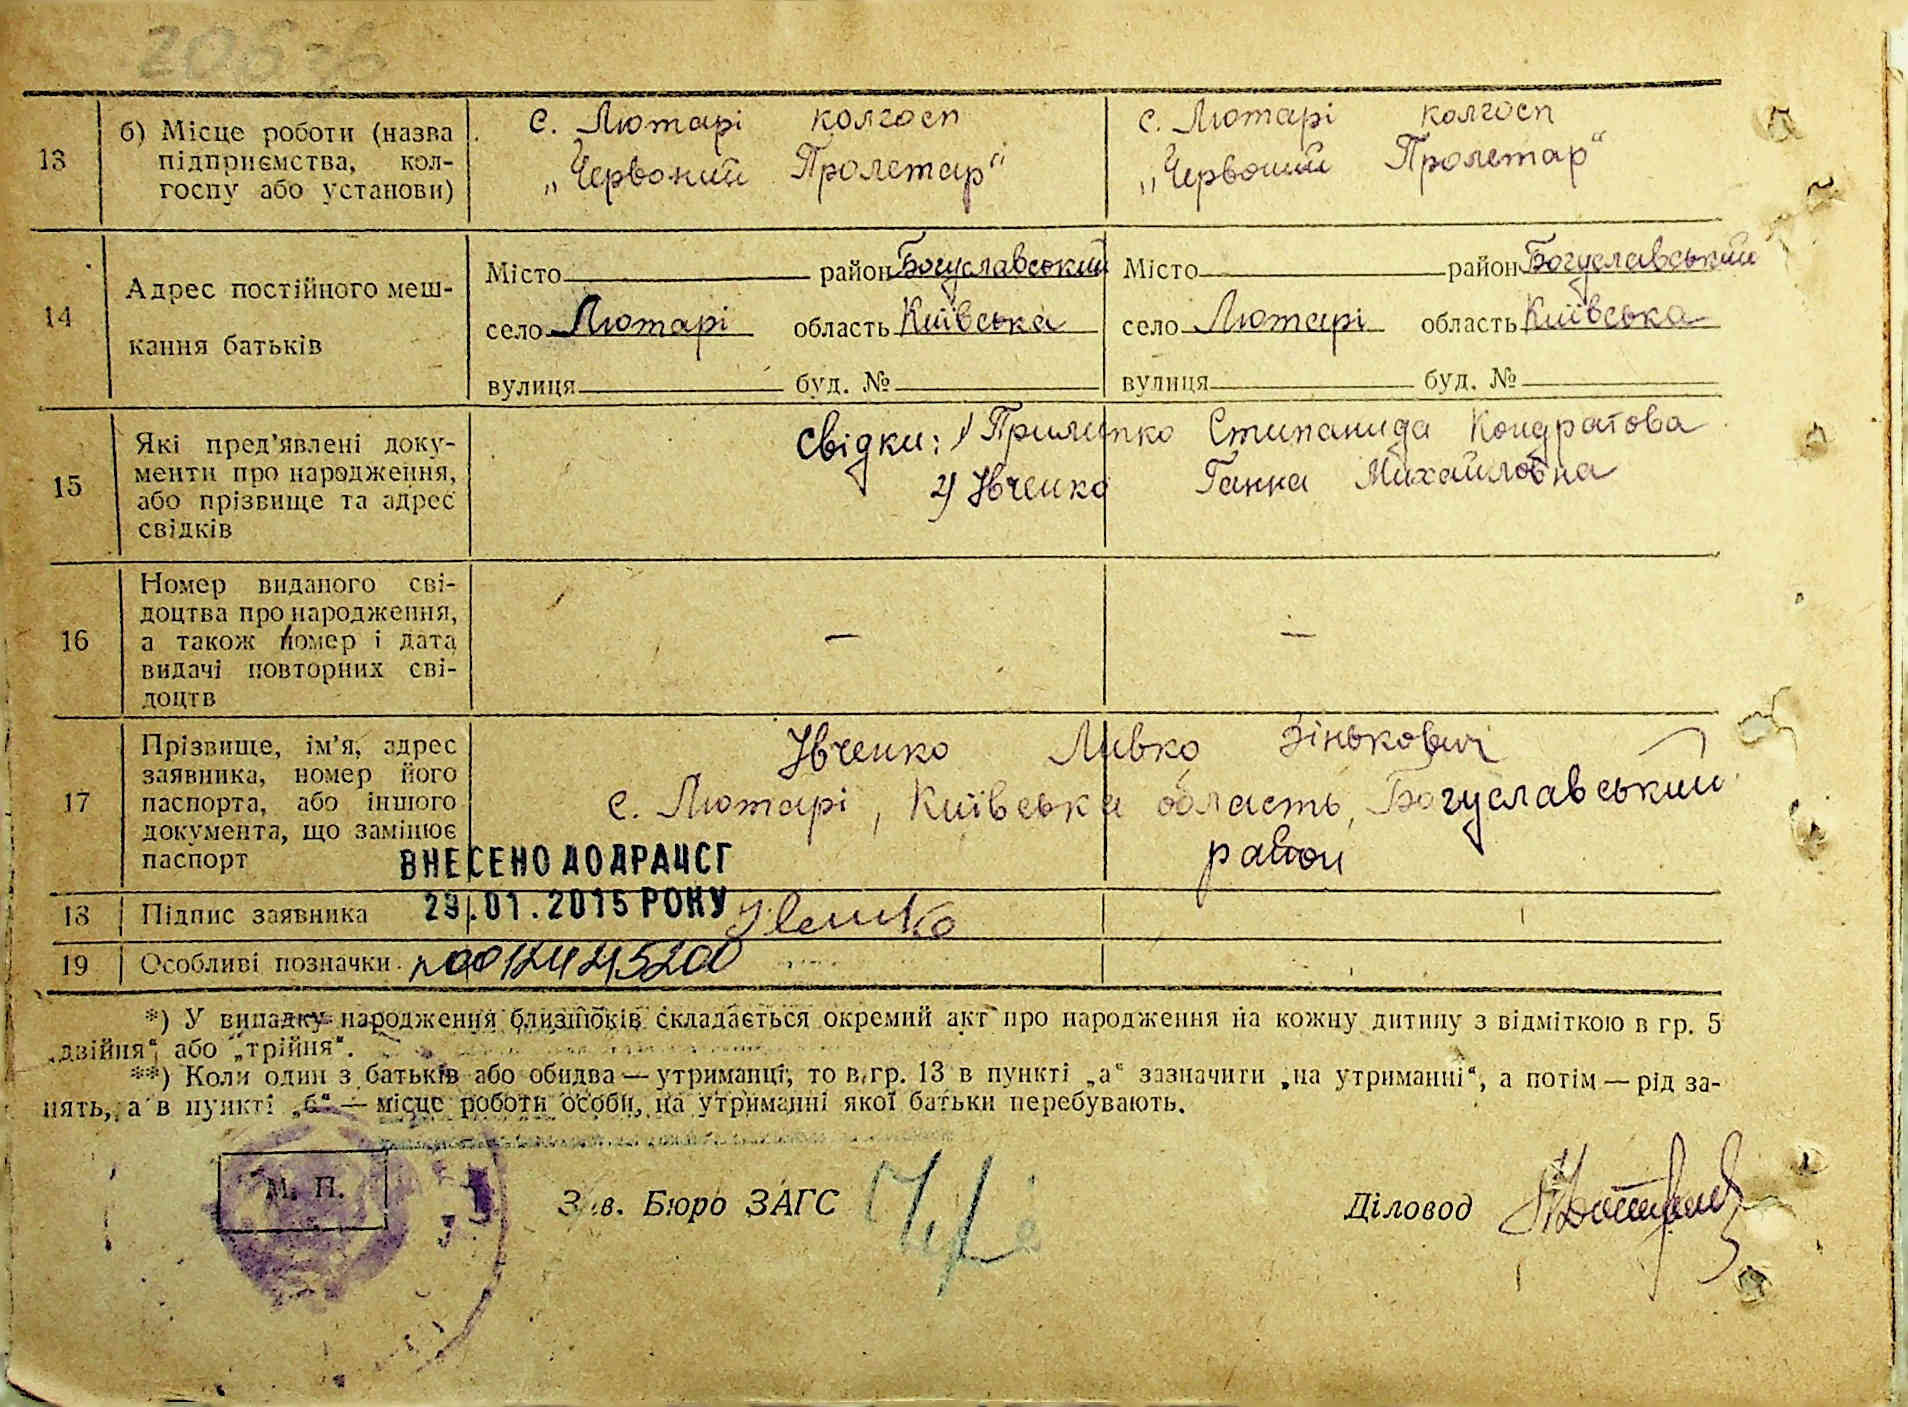 13 б) Місце роботи (назва підприємства, кол-
госпу або установи)
с. Лютарі колгосп
„Червоний Пролетар“
с. Лютарі колгосп
„Червоний Пролетар“
14 Адрес постійного меш-
кання батьків
Місто район Богуславський
село Лютарі область Київська
вулиця буд. №
Місто район Богуславський
село Лютарі область Київська
вулиця буд. №
15 Які пред’явлені доку-
менти про народження,
або прізвище та адрес
свідків
Свідки: 1) Прилипко Стипанида Кондратова
2) Івченко Ганна Михайловна
16 Номер виданого сві-
доцтва про народження,
а також номер і дата
видачі повторних сві-
доцтв
— —
17 Прізвище, ім’я, адрес
заявника, номер його
паспорта, або іншого
документа, що замінює
паспорт
Івченко Ливко Зінькович
с. Лютарі, Київська область, Богуславський
район
ВНЕСЕНО ДО ДРАЦСГ
29.01.2015 РОКУ
18 Підпис заявника Івченко
19 Особливі позначки 00124245200
*) У випадку народження близнюків складається окремий акт про народження на кожну дитину з відміткою в гр. 5
„двійня“ або „трійня“.
**) Коли один з батьків або обидва — утриманці, то в гр. 13 в пункті „а“ зазначити „на утриманні“, а потім — рід за-
нять, а в пункті „б“ — місце роботи особи, на утриманні якої батьки перебувають.
М. П.
Зав. Бюро ЗАГС
Діловод